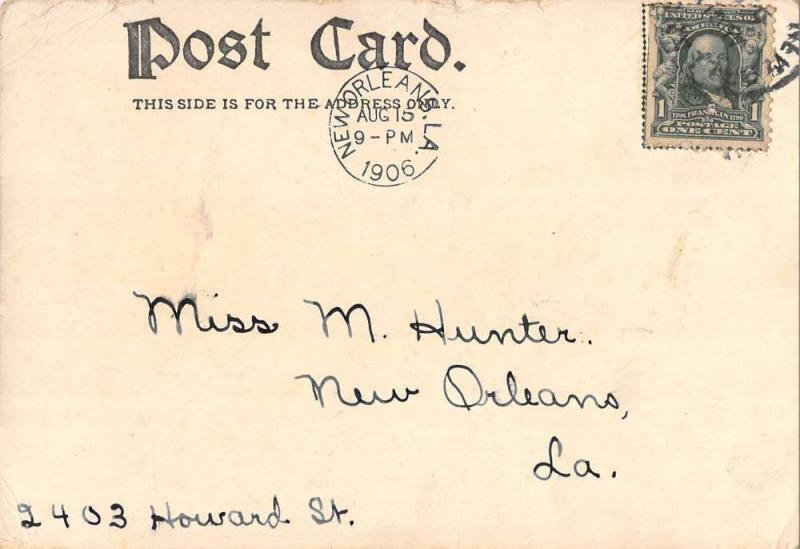 Post Card.
THIS SIDE IS FOR THE ADDRESS ONLY.
NEW ORLEANS, LA.
AUG 15
9-PM
1906
UNITED STATES OF
AMERICA
1 1
1706 FRANKLIN 1790
POSTAGE
ONE CENT
Miss M. Hunter.
New Orleans,
La.
2403 Howard St.